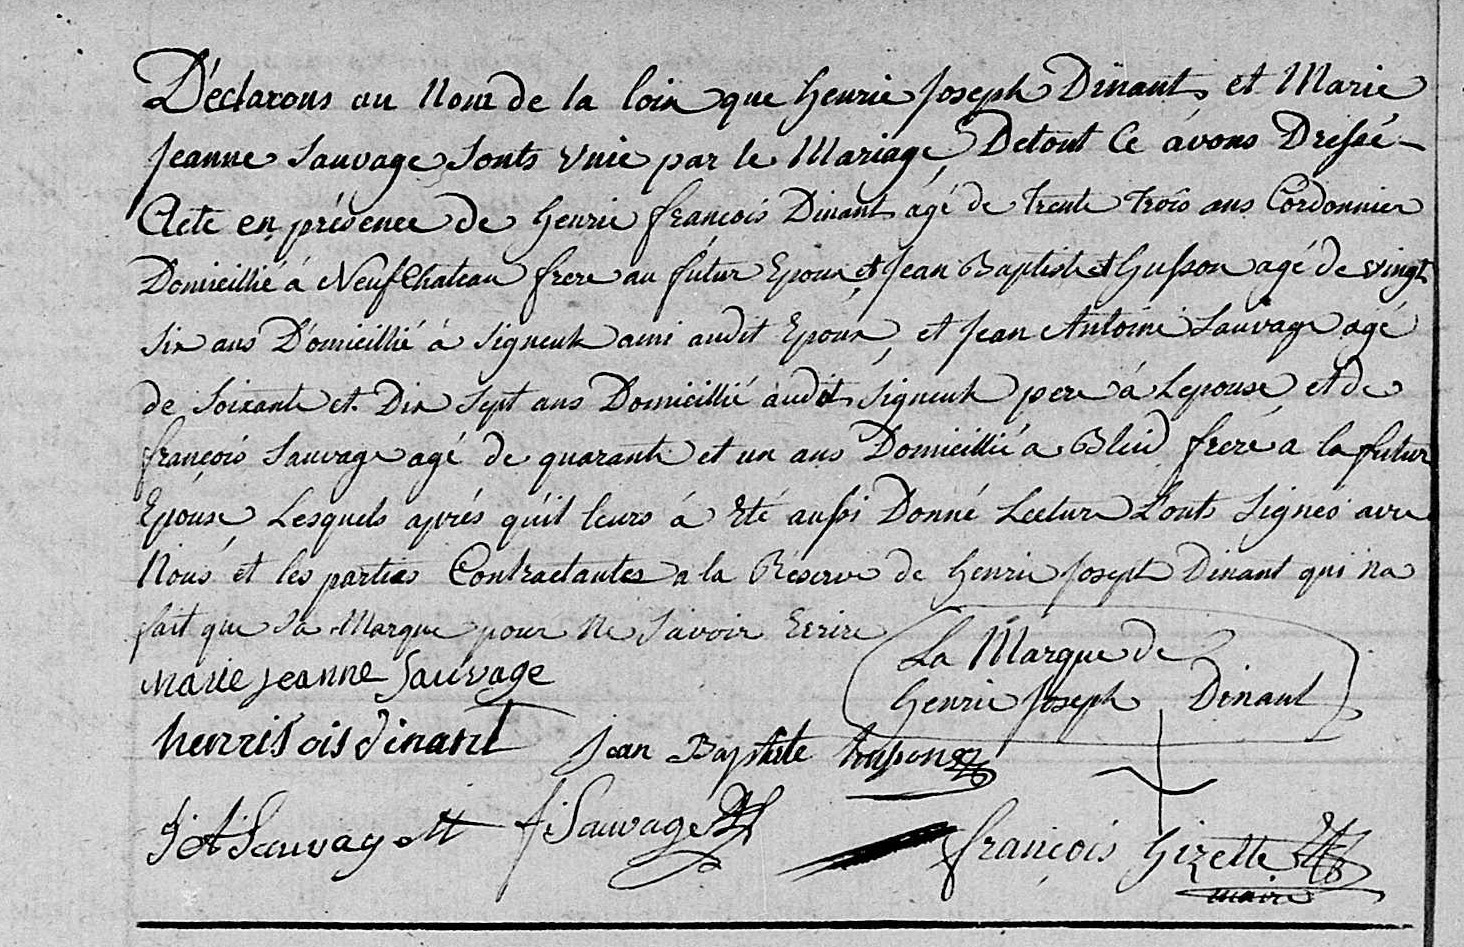 Déclarons au Nom de la loix que henrie Joseph Dinant et Marie
Jeanne Sauvage Sonts Unie par le Mariage, De tout Ce avons Dressé
Acte en présence de henrie françois Dinant agé de trente trois ans Cordonnier
Domicillié á Neufchateau frere au futur Epoux, et Jean Baptiste husson agé de vingt
Six ans Domicillié á Signeulx ami audit Epoux, et Jean Antoine Sauvage agé
de Soixante et Dix Sept ans Domicillié audit Signeulx pere á Lepouse et de
françois Sauvage agé de quarante et un ans Domicillié a Bleid frere a la futur
Epouse, Lesquels aprés qu'il leurs á Eté aussi Donné Lecture L'onts Signés avec
Nous et les parties Contractantes a la Réserve de henrie Joseph Dinant qui n'a
fait que Sa Marque pour Ne Savoir Ecrire
La Marque de
henrie Joseph Dinant
marie jeanne Sauvage
henri fois dinant
Jean Baptiste husson
J A Sauvage
f Sauvage
françois Gizette
maire